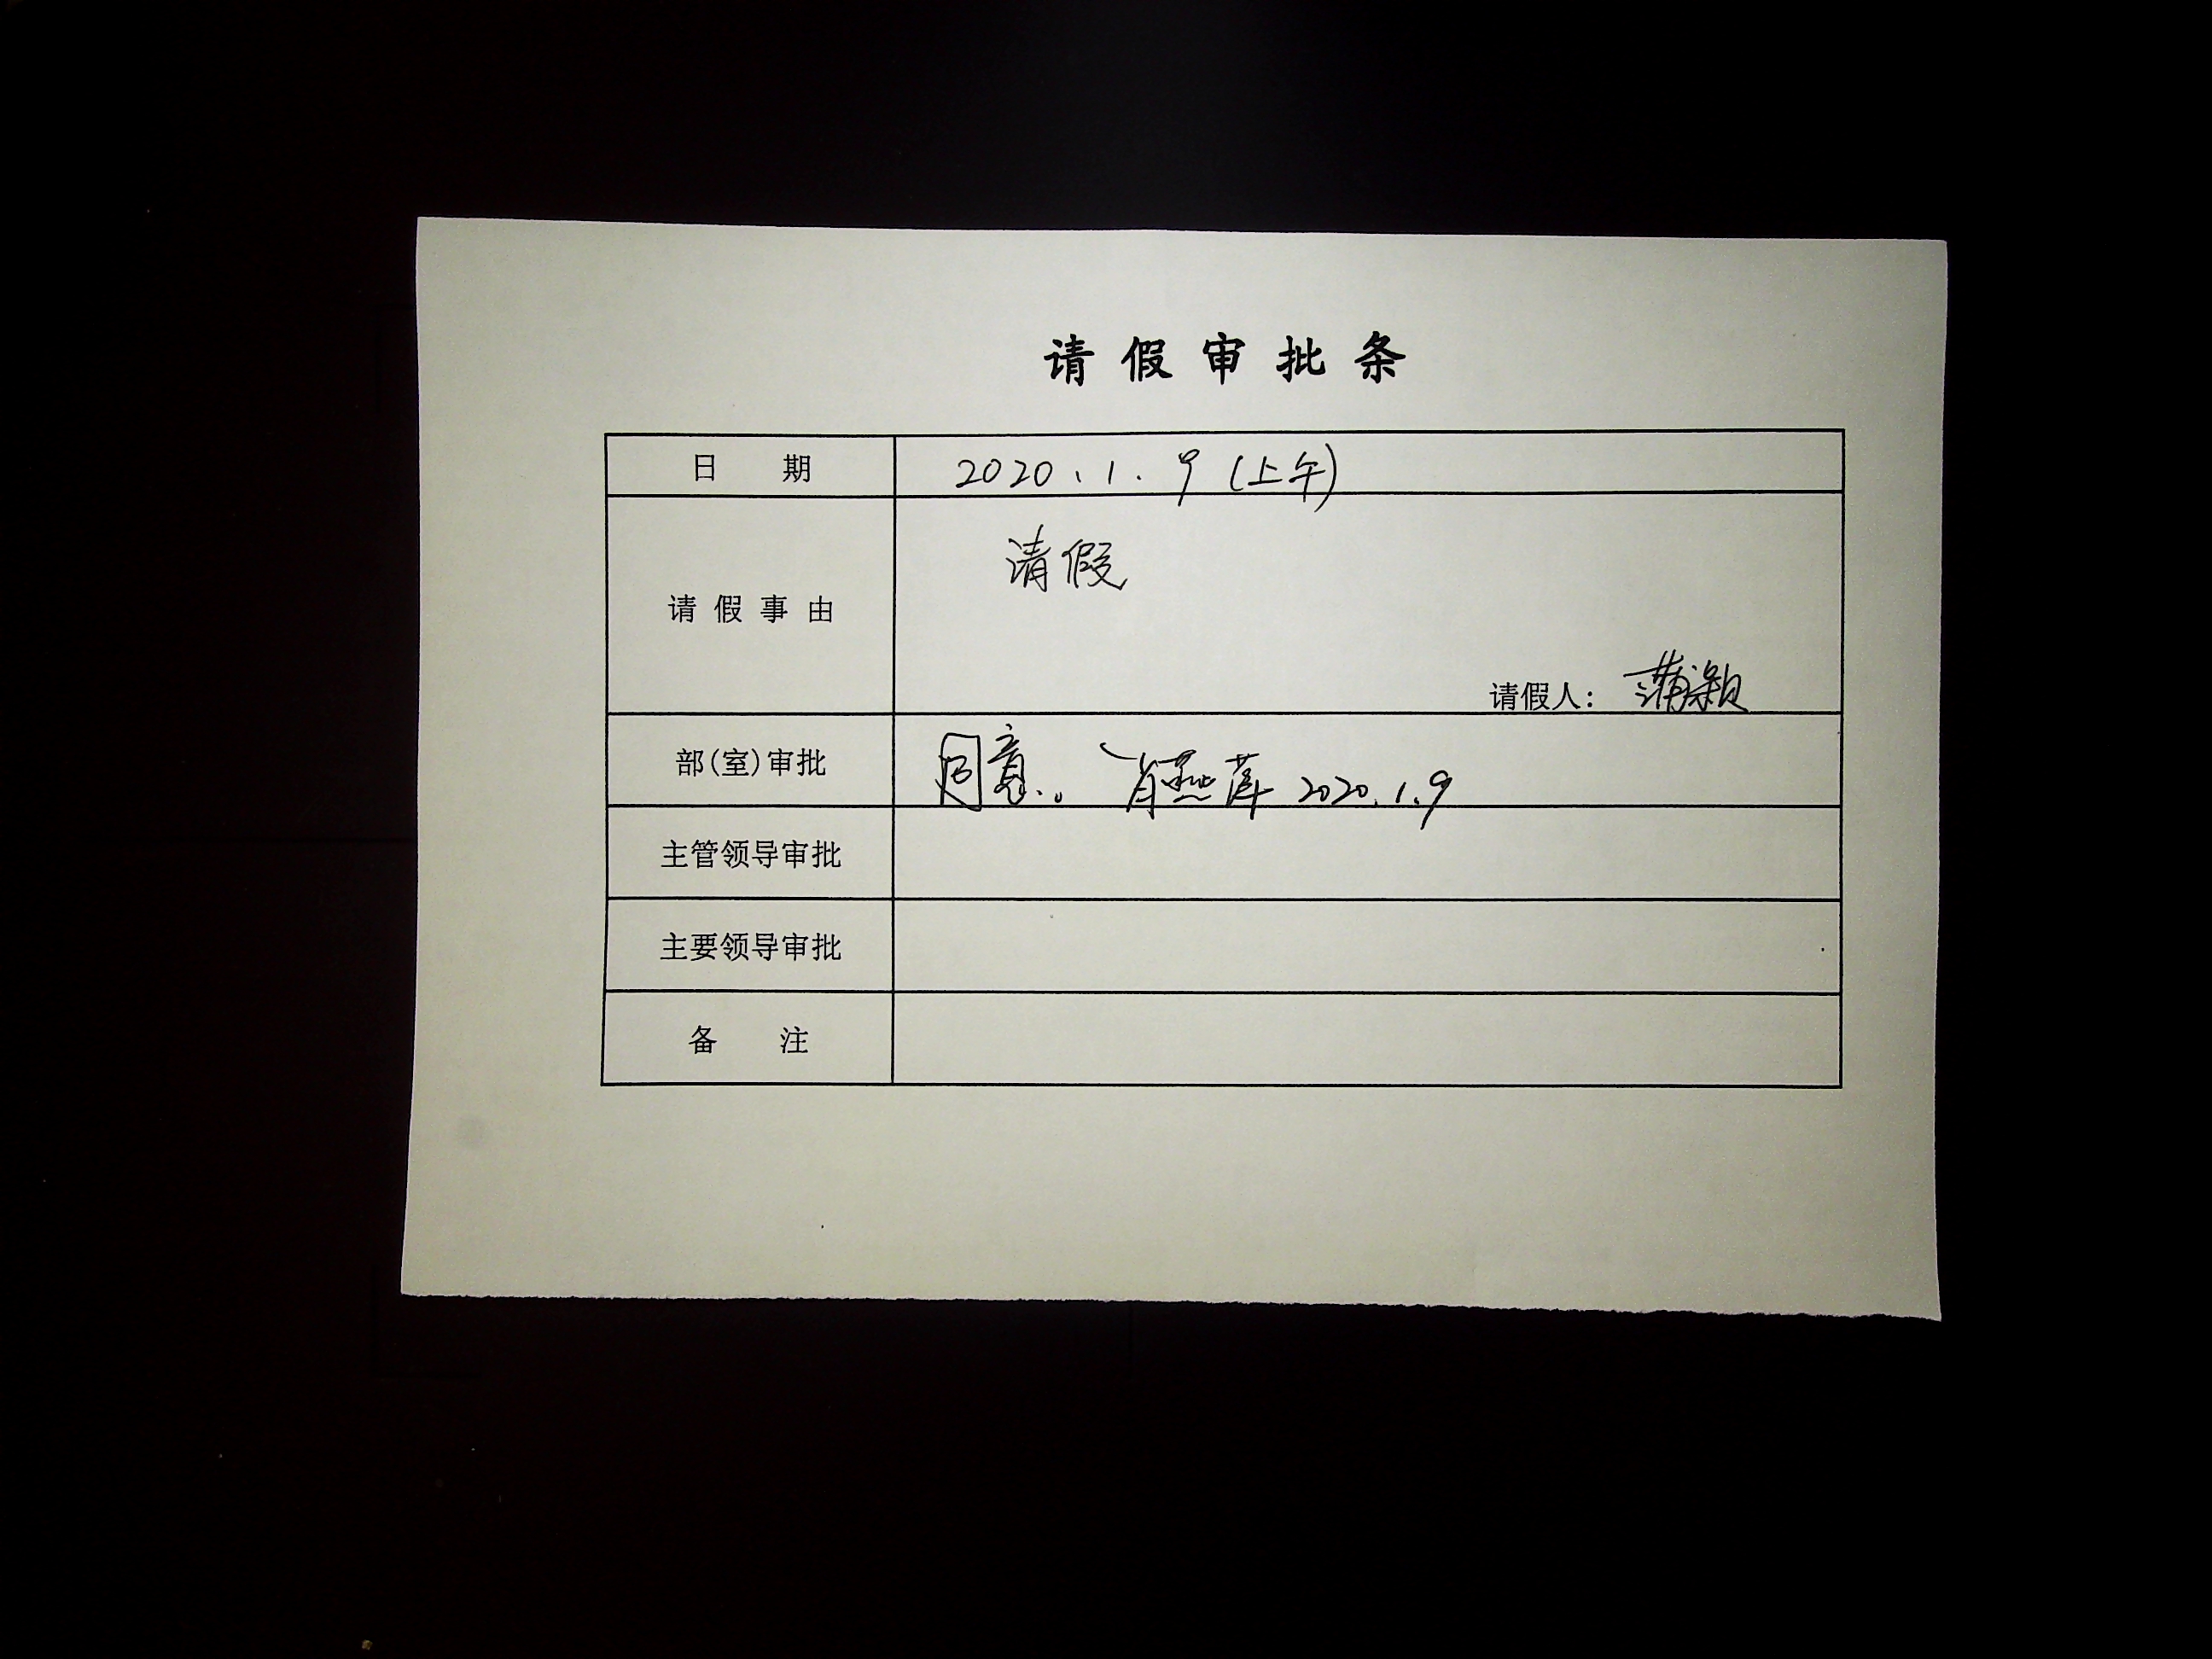 请假审批条
日期 2020.1.9(上午)
请假
请假事由
请假人: 蒲颖
部(室)审批 同意。 肖燕萍 2020.1.9
主管领导审批
主要领导审批
备注